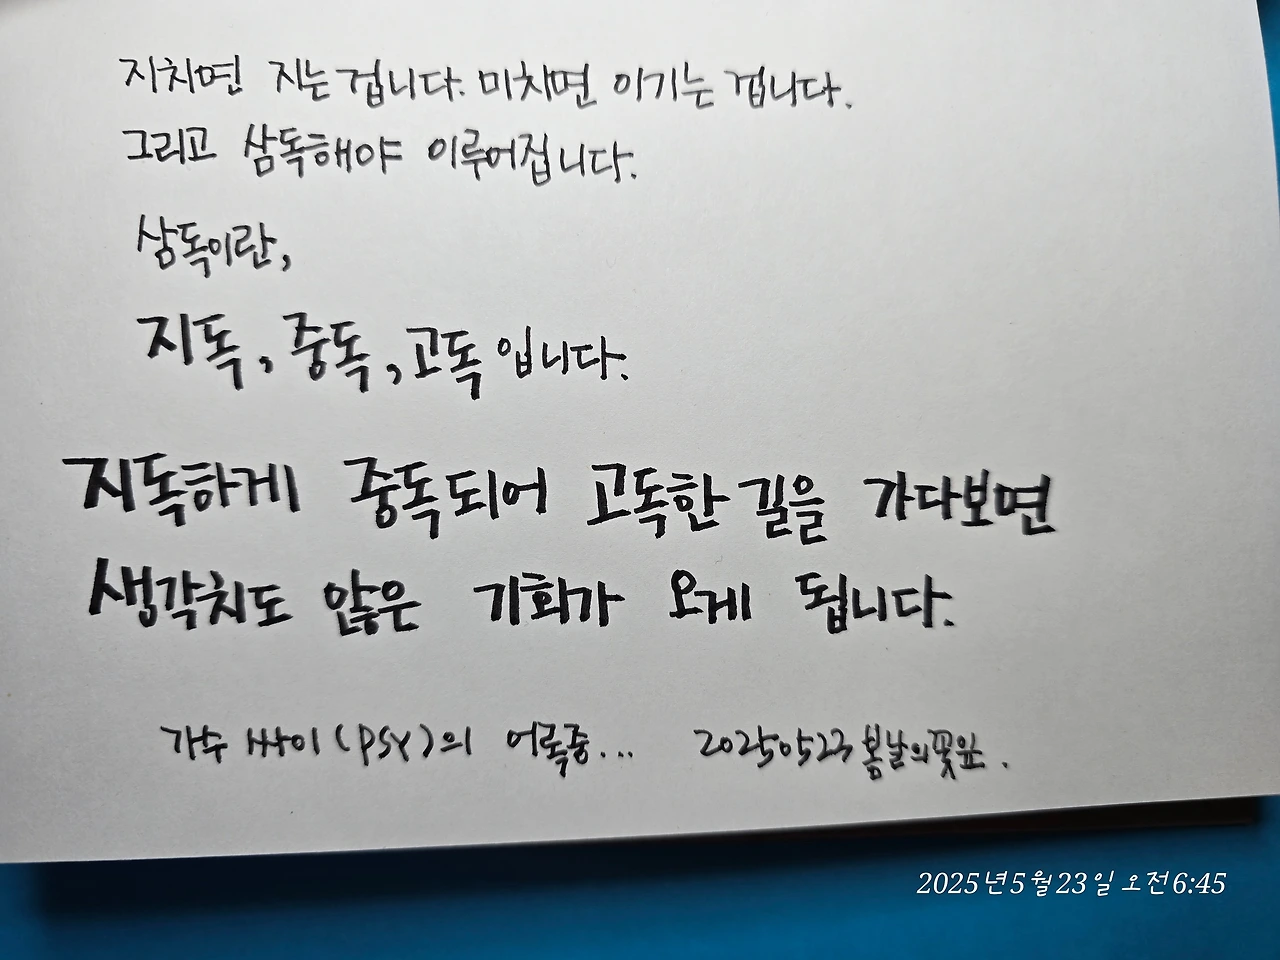 지치면 지는 겁니다. 미치면 이기는 겁니다.
그리고 삼독해야 이루어집니다.
삼독이란,
지독, 중독, 고독입니다.
지독하게 중독되어 고독한 길을 가다보면
생각치도 않은 기회가 오게 됩니다.
가수 싸이(PSY)의 어록중... 20250523 봄날의꽃잎.
2025년 5월 23일 오전 6:45